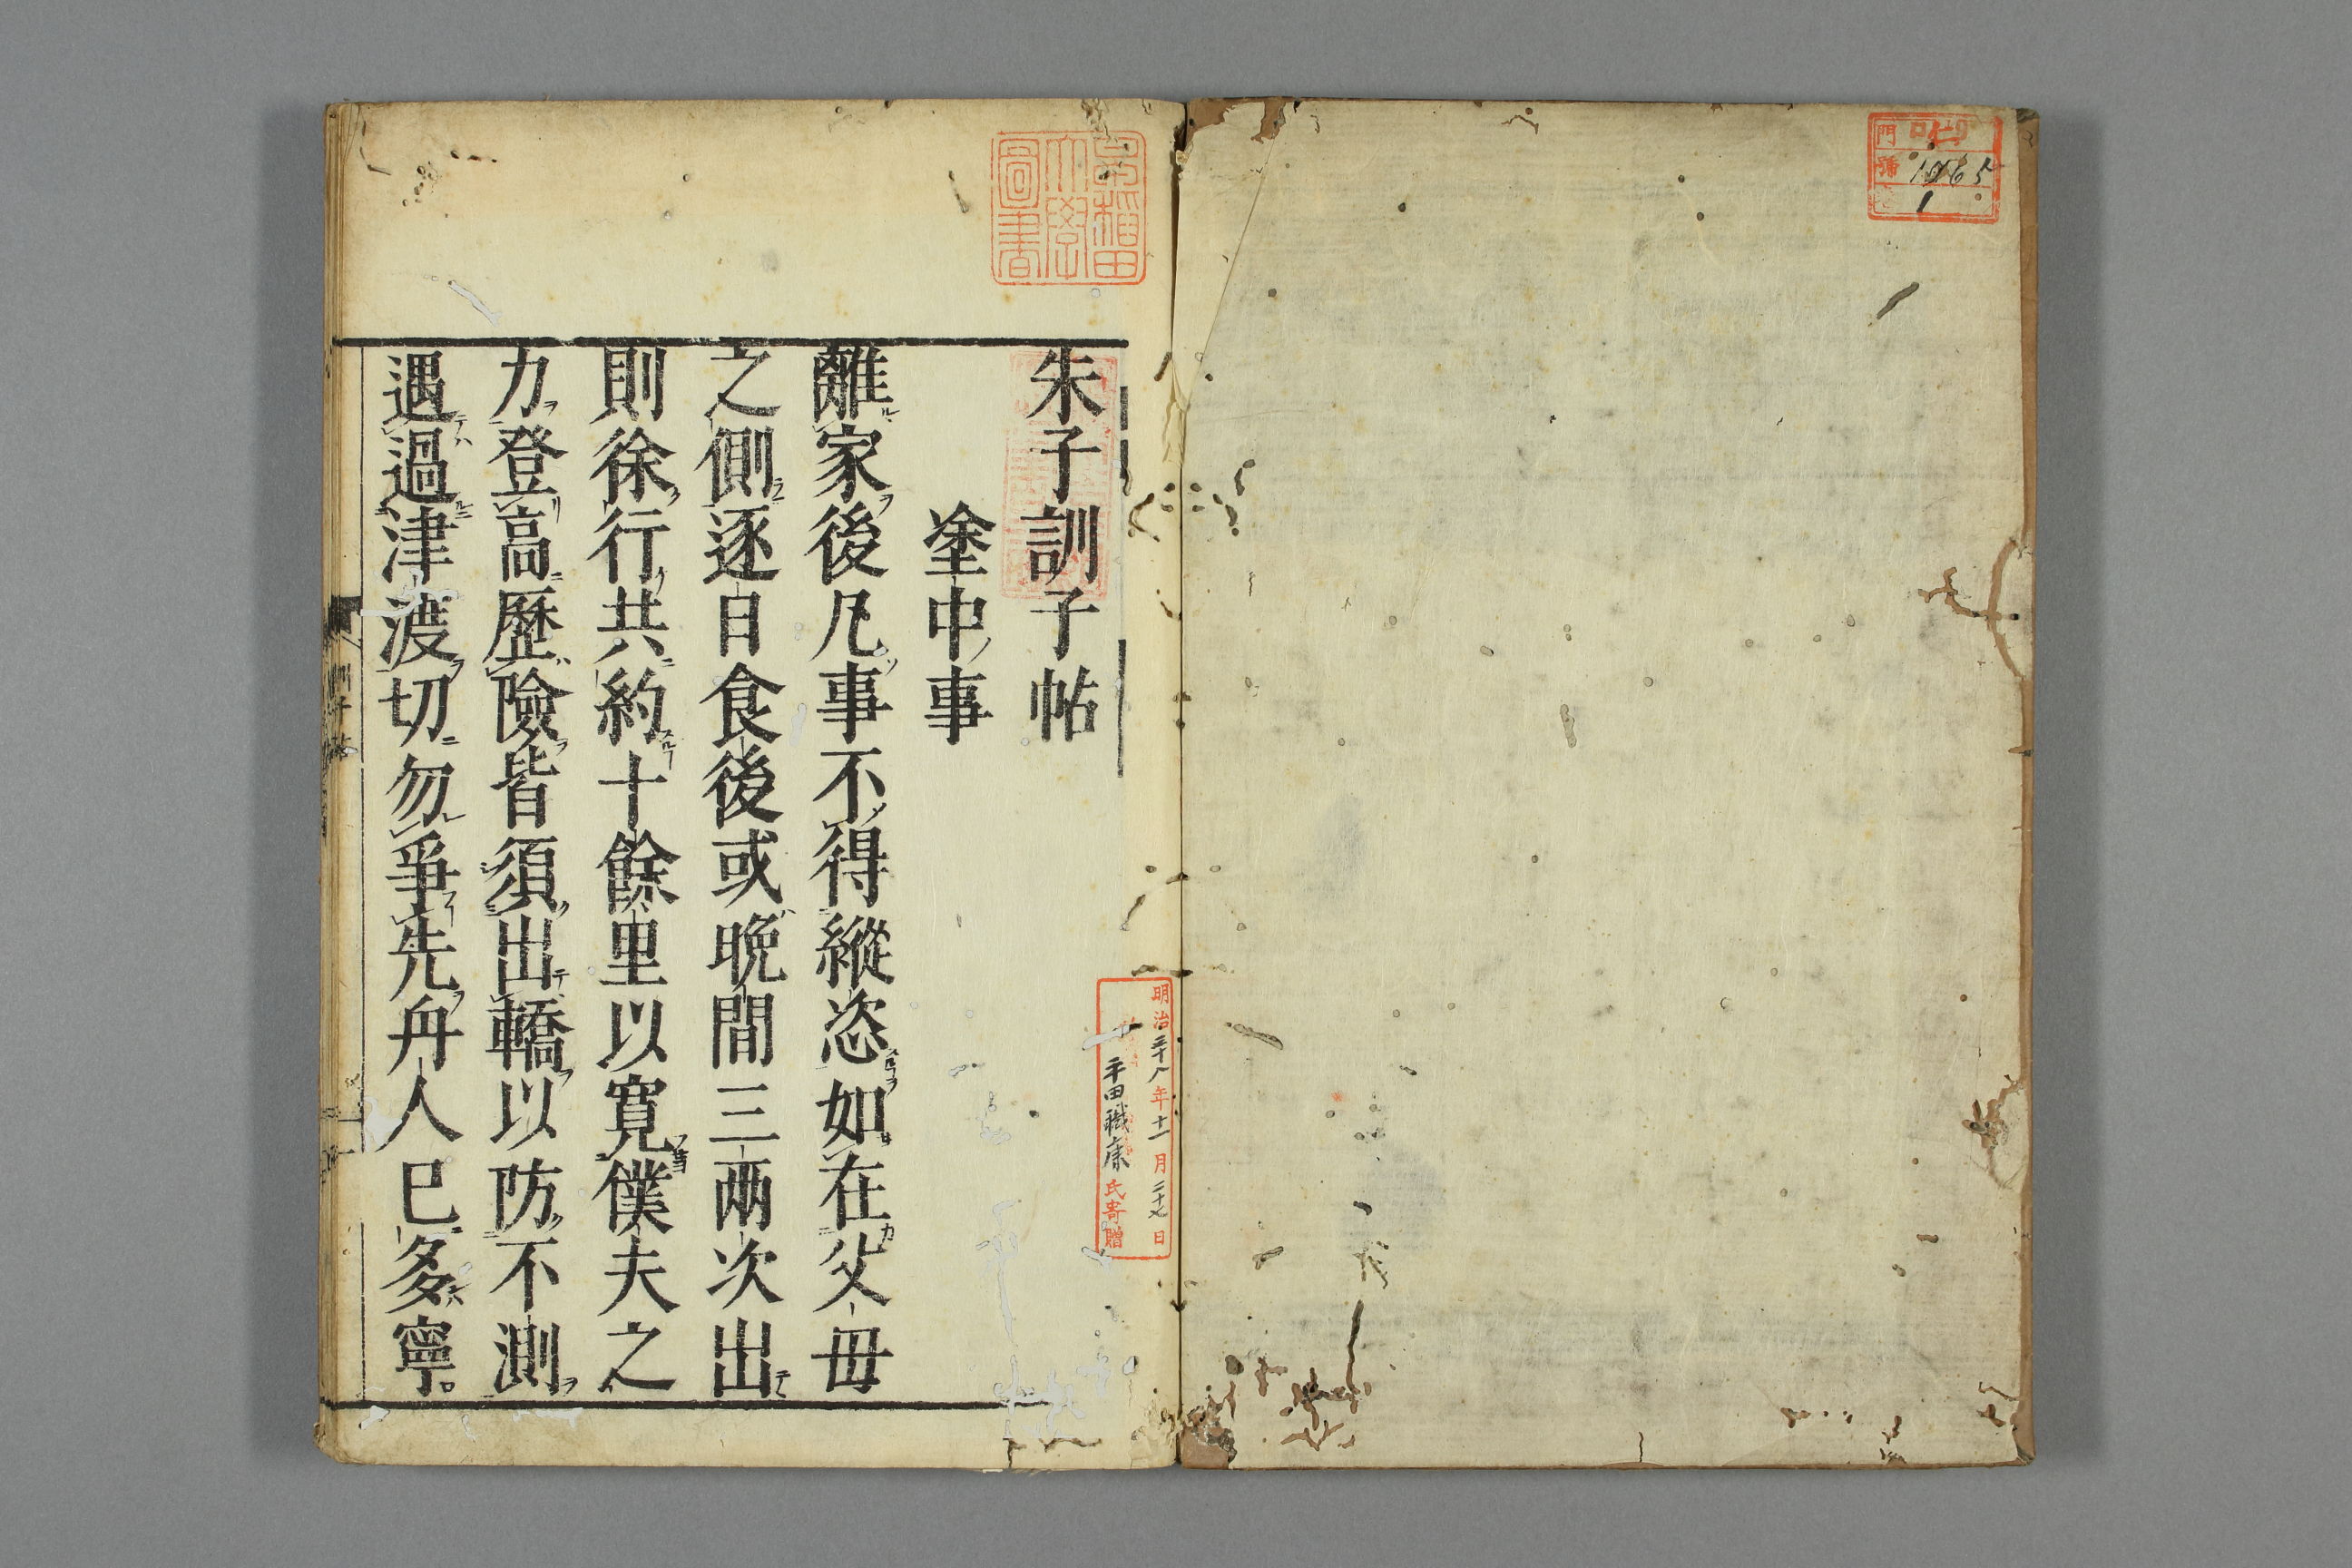 門 口 13
號 1065
1
早稲田
大學
圖書
朱子訓子帖
塗中事
離家後凡事不得縱恣如在父母
之側逐日食後或晩間三兩次出
則徐行共約十餘里以寬僕夫之
力登高歷險皆須出轎以防不測
遇過津渡切勿爭先舟人已多寧
明治三十八年十一月二十七日
平田職康氏寄贈
訓子帖